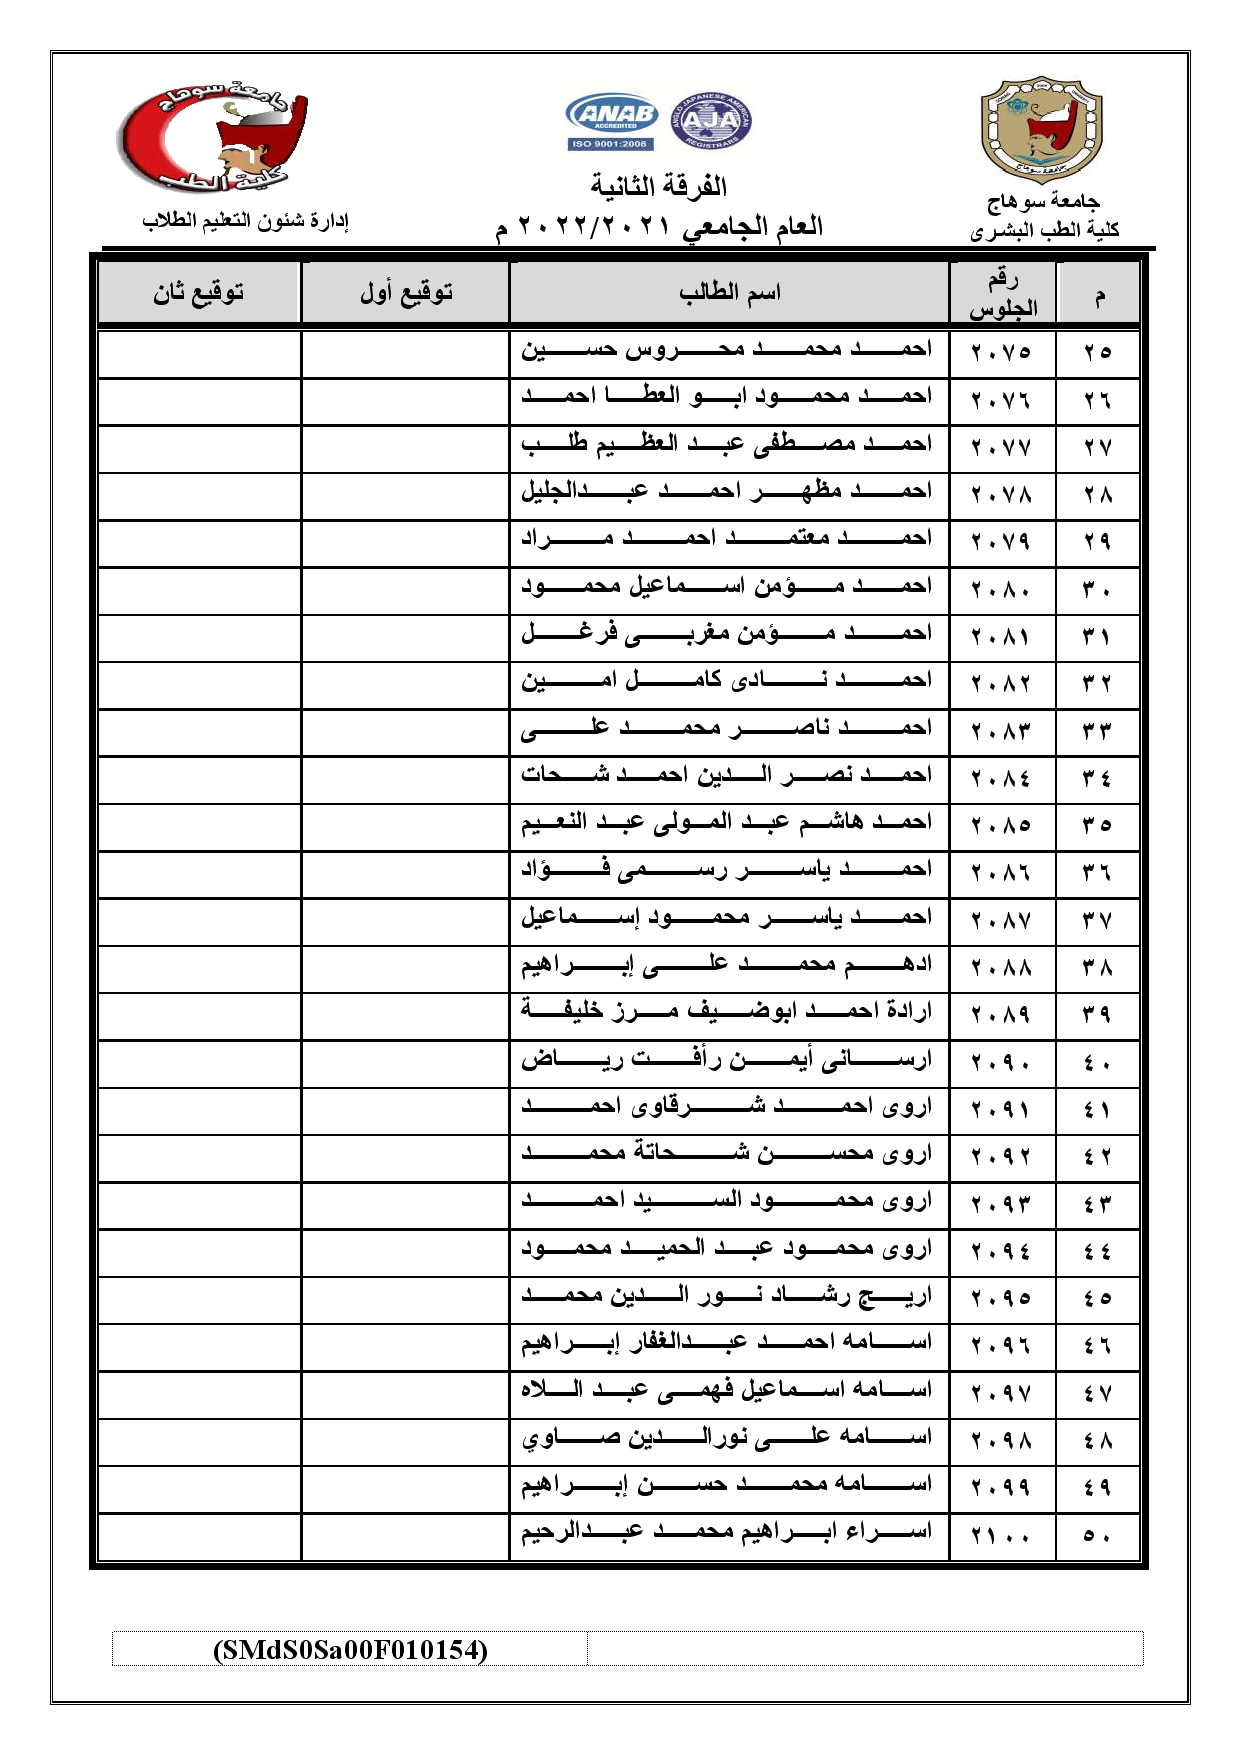 جامعة سوهاج
كلية الطب
ANAB
ACCREDITED
ISO 9001:2008
ANGLO JAPANESE AMERICAN
AJA
REGISTRARS
جامعة سوهاج
جامعة سوهاج
كلية الطب البشرى
الفرقة الثانية
العام الجامعي ٢٠٢٢/٢٠٢١ م
إدارة شئون التعليم الطلاب
م رقم الجلوس اسم الطالب توقيع أول توقيع ثان
٢٥ ٢٠٧٥ احمد محمد محروس حسين
٢٦ ٢٠٧٦ احمد محمود ابو العطا احمد
٢٧ ٢٠٧٧ احمد مصطفى عبد العظيم طلب
٢٨ ٢٠٧٨ احمد مظهر احمد عبدالجليل
٢٩ ٢٠٧٩ احمد معتمد احمد مراد
٣٠ ٢٠٨٠ احمد مؤمن اسماعيل محمود
٣١ ٢٠٨١ احمد مؤمن مغربى فرغل
٣٢ ٢٠٨٢ احمد نادى كامل امين
٣٣ ٢٠٨٣ احمد ناصر محمد على
٣٤ ٢٠٨٤ احمد نصر الدين احمد شحات
٣٥ ٢٠٨٥ احمد هاشم عبد المولى عبد النعيم
٣٦ ٢٠٨٦ احمد ياسر رسمى فؤاد
٣٧ ٢٠٨٧ احمد ياسر محمود إسماعيل
٣٨ ٢٠٨٨ ادهم محمد على إبراهيم
٣٩ ٢٠٨٩ ارادة احمد ابوضيف مرز خليفة
٤٠ ٢٠٩٠ ارسانى أيمن رأفت رياض
٤١ ٢٠٩١ اروى احمد شرقاوى احمد
٤٢ ٢٠٩٢ اروى محسن شحاتة محمد
٤٣ ٢٠٩٣ اروى محمود السيد احمد
٤٤ ٢٠٩٤ اروى محمود عبد الحميد محمود
٤٥ ٢٠٩٥ اريج رشاد نور الدين محمد
٤٦ ٢٠٩٦ اسامه احمد عبدالغفار إبراهيم
٤٧ ٢٠٩٧ اسامه اسماعيل فهمى عبد اللاه
٤٨ ٢٠٩٨ اسامه على نورالدين صاوي
٤٩ ٢٠٩٩ اسامه محمد حسن إبراهيم
٥٠ ٢١٠٠ اسراء ابراهيم محمد عبدالرحيم
(SMdS0Sa00F010154)